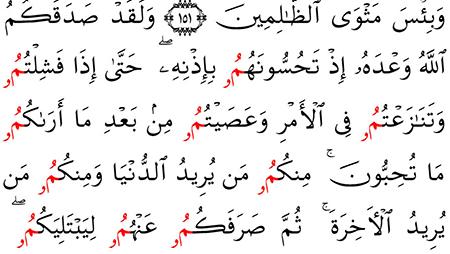 وَبِئْسَ مَثْوَى ٱلظَّٰلِمِينَ ١٥١ وَلَقَدْ صَدَقَكُمُۥ
ٱللَّهُ وَعْدَهُۥ إِذْ تَحُسُّونَهُمُۥ بِإِذْنِهِۦۖ حَتَّىٰ إِذَا فَشِلْتُمُۥ
وَتَنَٰزَعْتُمُۥ فِى ٱلْأَمْرِ وَعَصَيْتُمُۥ مِنۢ بَعْدِ مَا أَرَىٰكُمُۥ
مَا تُحِبُّونَۚ مِنكُمُۥ مَن يُرِيدُ ٱلدُّنْيَا وَمِنكُمُۥ مَن
يُرِيدُ ٱلْأَخِرَةَۚ ثُمَّ صَرَفَكُمُۥ عَنْهُمُۥ لِيَبْتَلِيَكُمُۥۖ